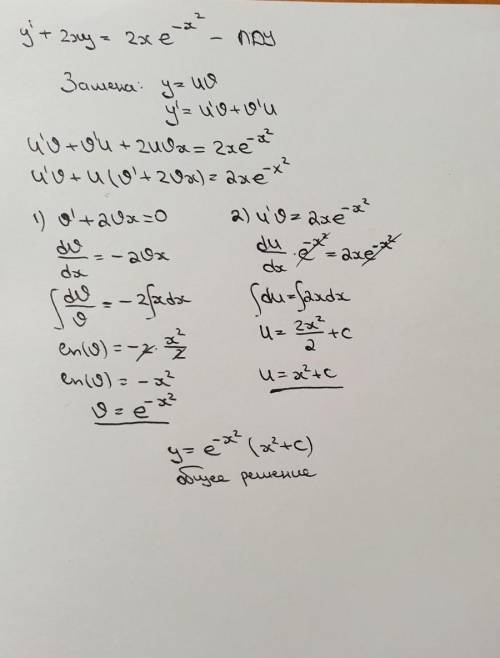 y' + 2xy = 2x e^{-x^2} – ЛДУ
Замена: y = uϑ
y' = u'ϑ + ϑ'u
u'ϑ + ϑ'u + 2uϑx = 2xe^{-x^2}
u'ϑ + u(ϑ' + 2ϑx) = 2xe^{-x^2}
1) ϑ' + 2ϑx = 0
dϑ/dx = -2ϑx
∫ dϑ/ϑ = -2∫xdx
ln(ϑ) = -2 · x^2/2
ln(ϑ) = -x^2
ϑ = e^{-x^2}
2) u'ϑ = 2xe^{-x^2}
du/dx · e^{-x^2} = 2xe^{-x^2}
∫du = ∫2xdx
u = 2x^2/2 + c
u = x^2 + c
y = e^{-x^2} (x^2 + c)
общее решение